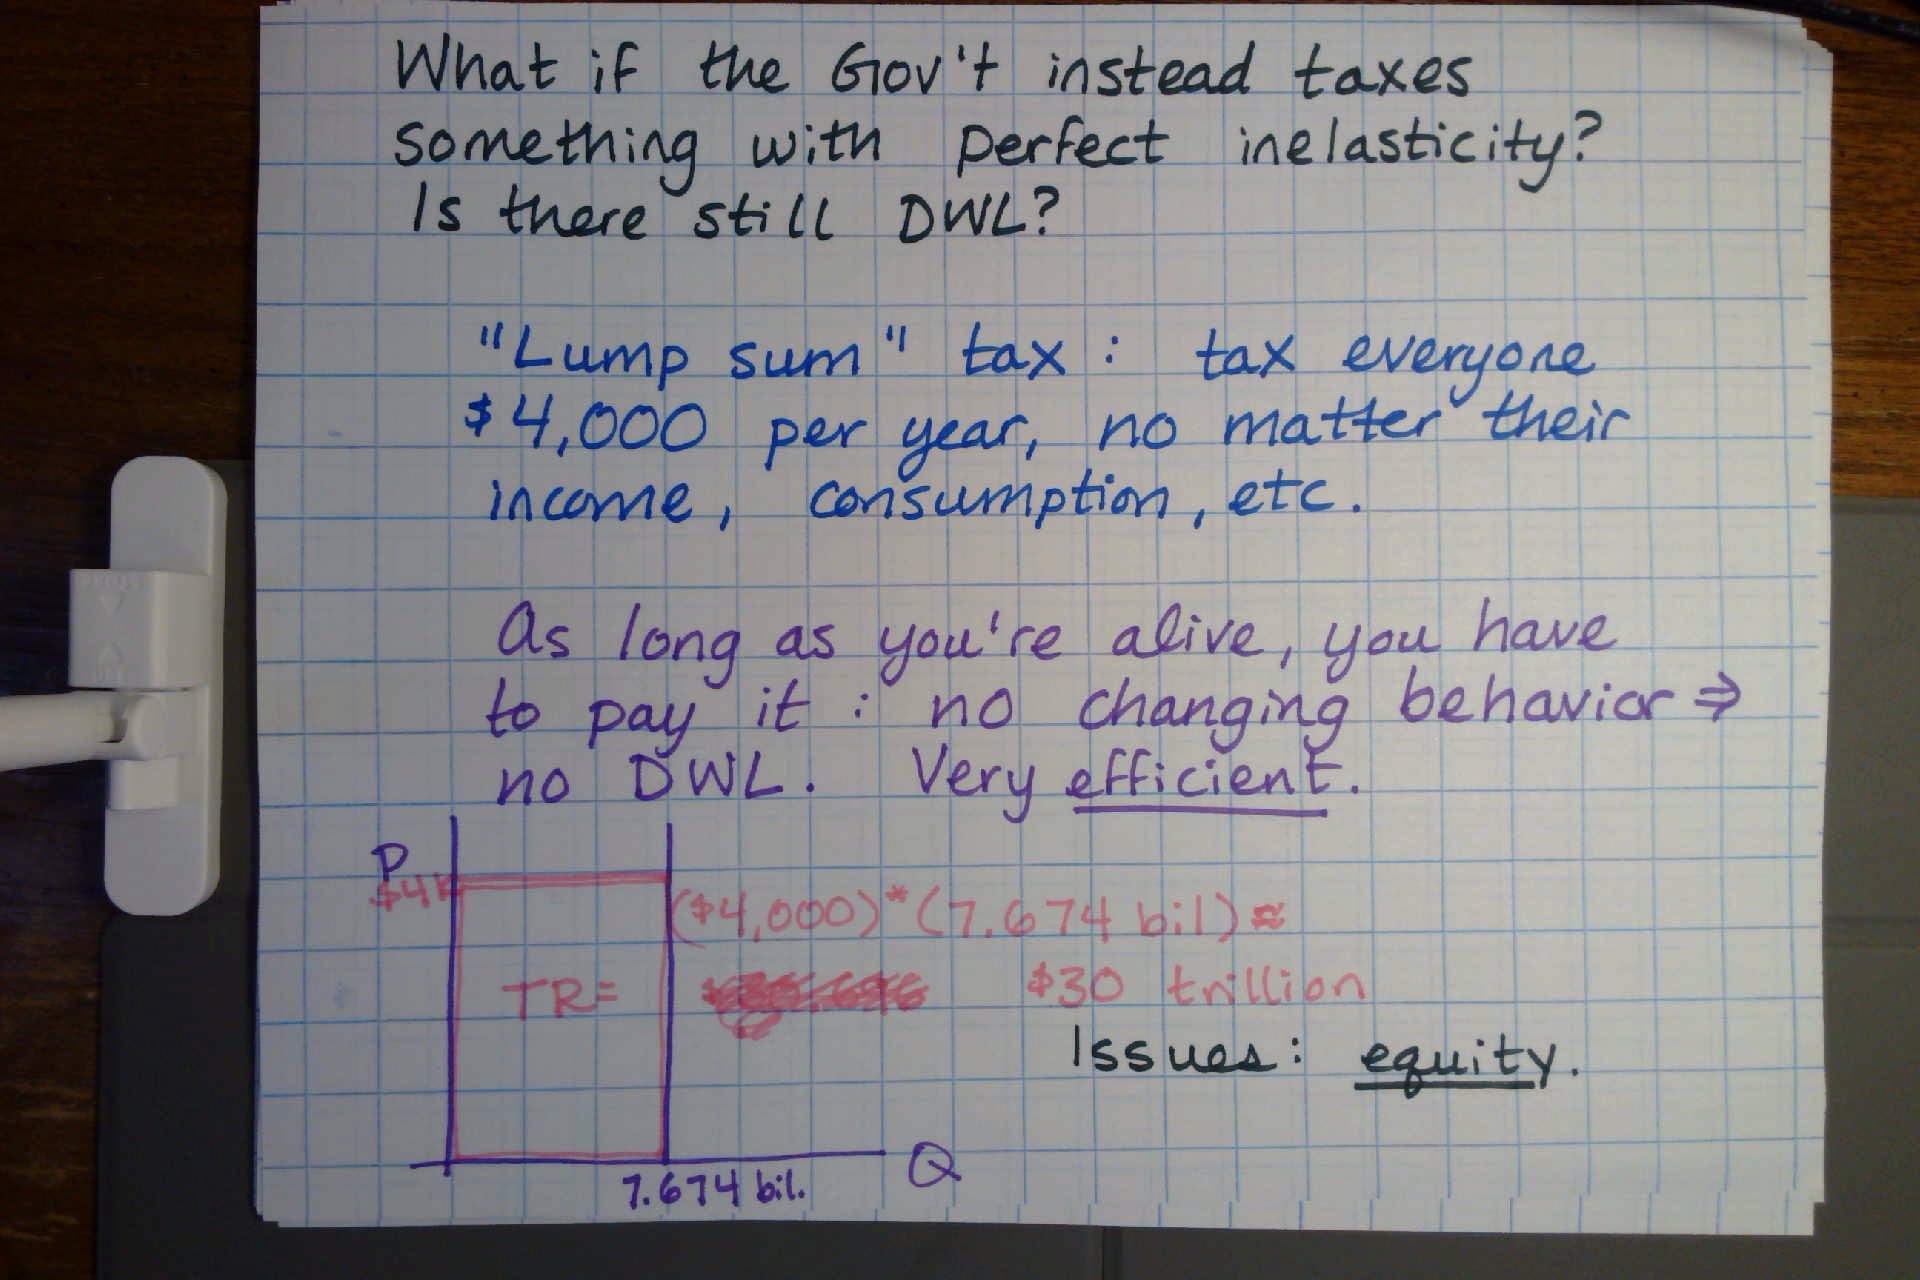 What if the Gov't instead taxes
something with perfect inelasticity?
Is there still DWL?
"Lump sum" tax: tax everyone
$4,000 per year, no matter their
income, consumption, etc.
As long as you're alive, you have
to pay it: no changing behavior ⇒
no DWL. Very efficient.
P
$4K
($4,000)*(7.674 bil) ≈
TR= $30 trillion
Issues: equity.
Q
7.674 bil.